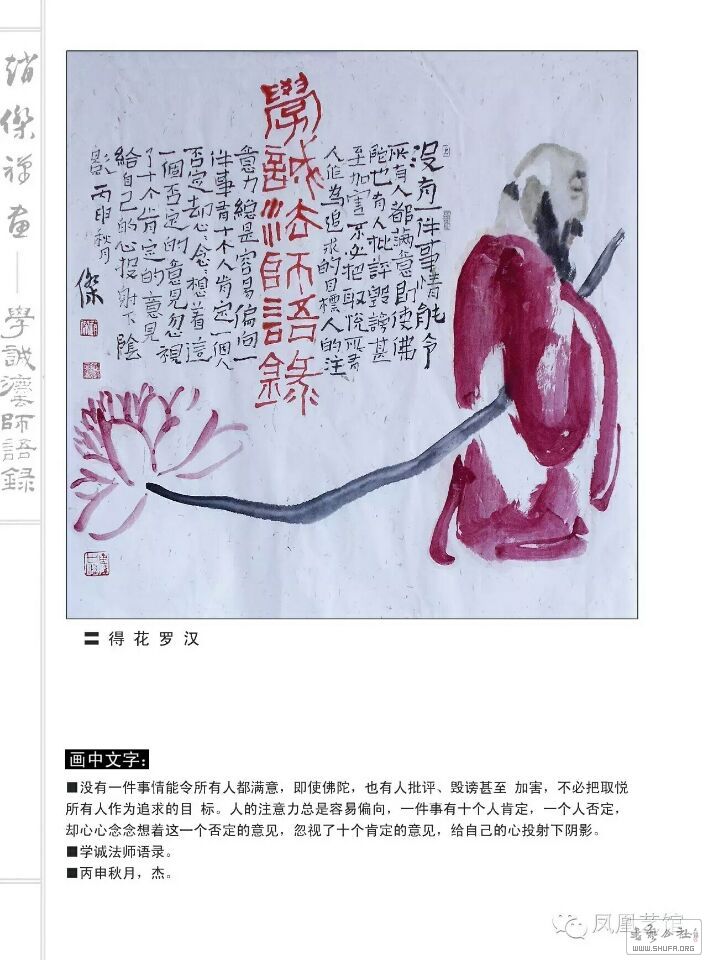 趙傑禅畫——學誠法師語録
没有一件事情能令
所有人都滿意即使佛
陀也有人批評毀謗甚
至加害不必把取悦所有
人作為追求的目標人的注
學誠法師語錄
意力總是容易偏向一
件事有十个人肯定一個人
否定却心心念念想着這
一個否定的意見忽視
了十个肯定的意見
給自己的心投射下陰
影丙申秋月
傑
〓 得花罗汉
画中文字：
■没有一件事情能令所有人都满意，即使佛陀，也有人批评、毁谤甚至 加害，不必把取悦
所有人作为追求的目 标。人的注意力总是容易偏向，一件事有十个人肯定，一个人否定，
却心心念念想着这一个否定的意见，忽视了十个肯定的意见，给自己的心投射下阴影。
■学诚法师语录。
■丙申秋月，杰。
凤凰艺馆
書法公社
WWW.SHUFA.ORG